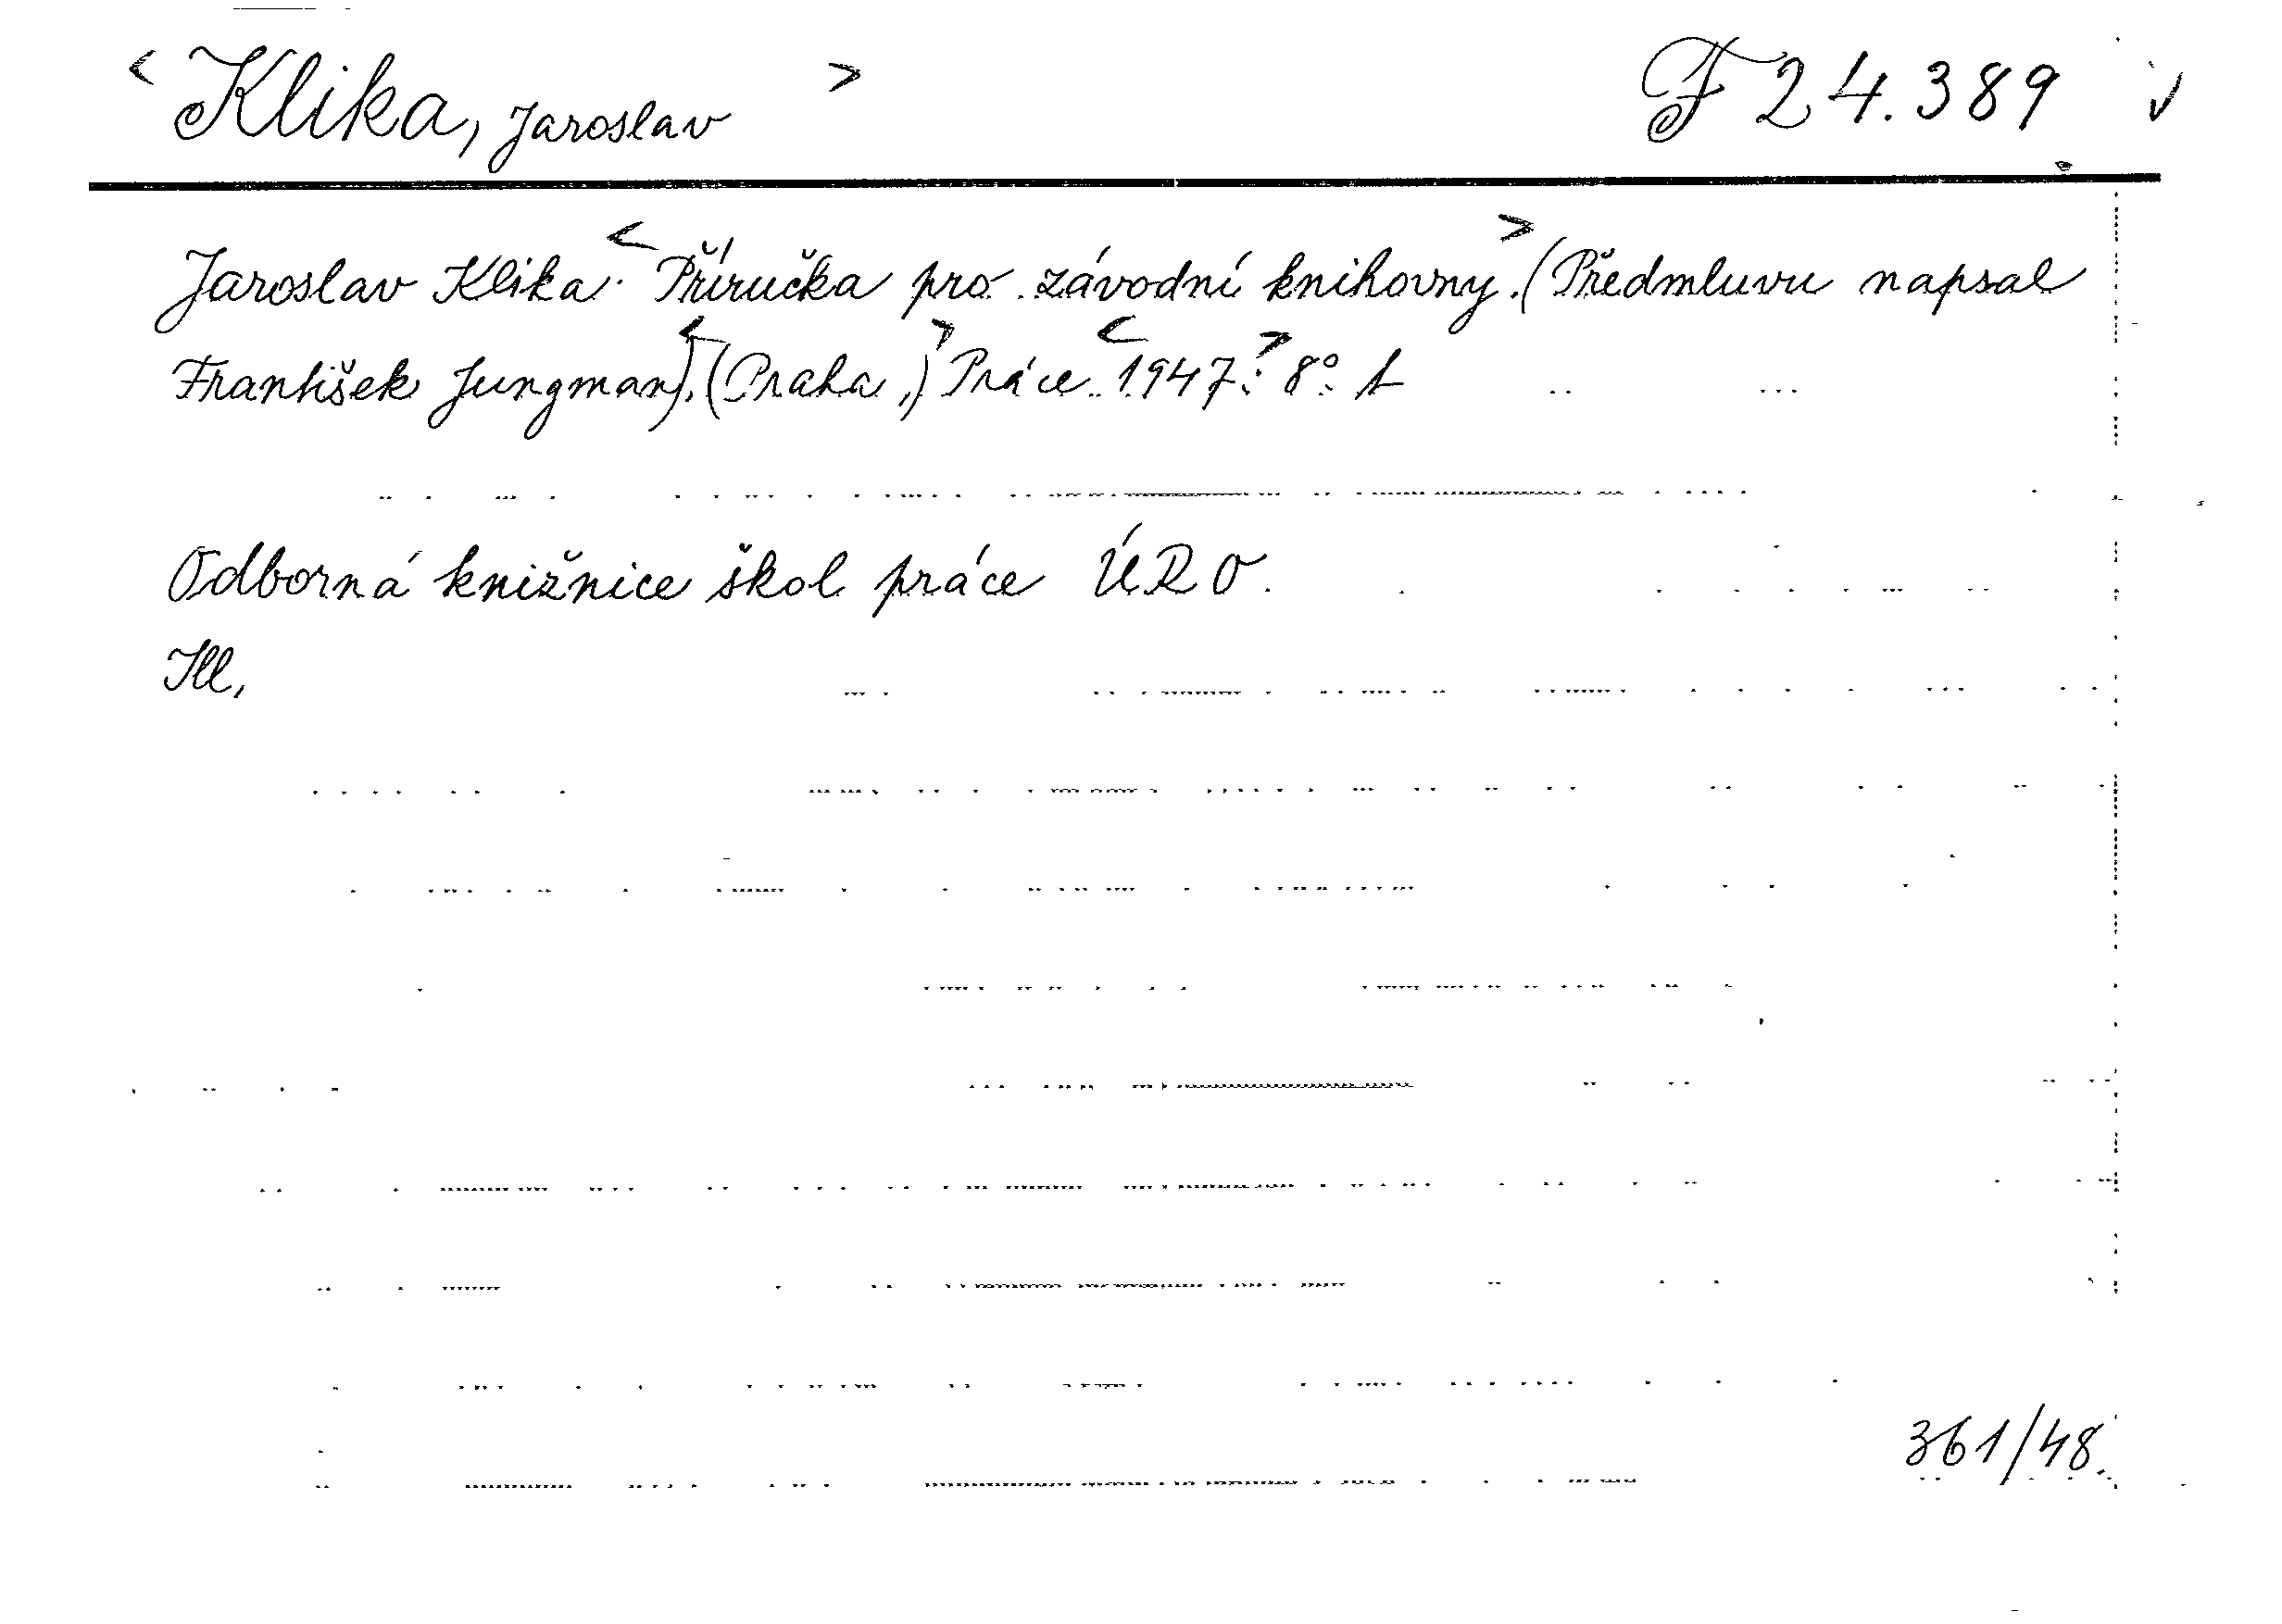 < Klika, Jaroslav > F 24.389 √
Jaroslav Klika. <Příručka pro závodní knihovny.> (Předmluvu napsal
František Jungman). <(Praha,)> Práce <1947.> 8° 1
Odborná knižnice škol práce ÚRO.
Ill.
361/48.